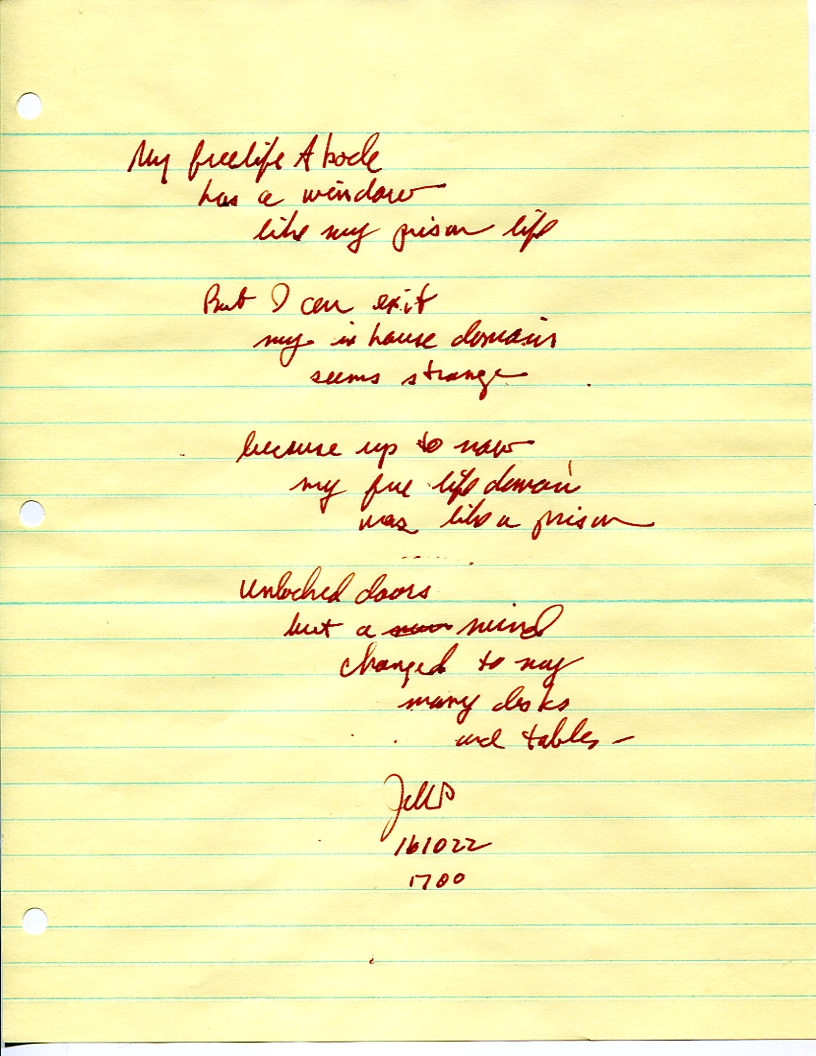 My freelife Abode
has a window
like my prison life
But I can exit
my in house domain
seems strange
because up to now
my free life domain
was like a prison
Unlocked doors
but a mind
changed to my
many desks
and tables –
161022
1700